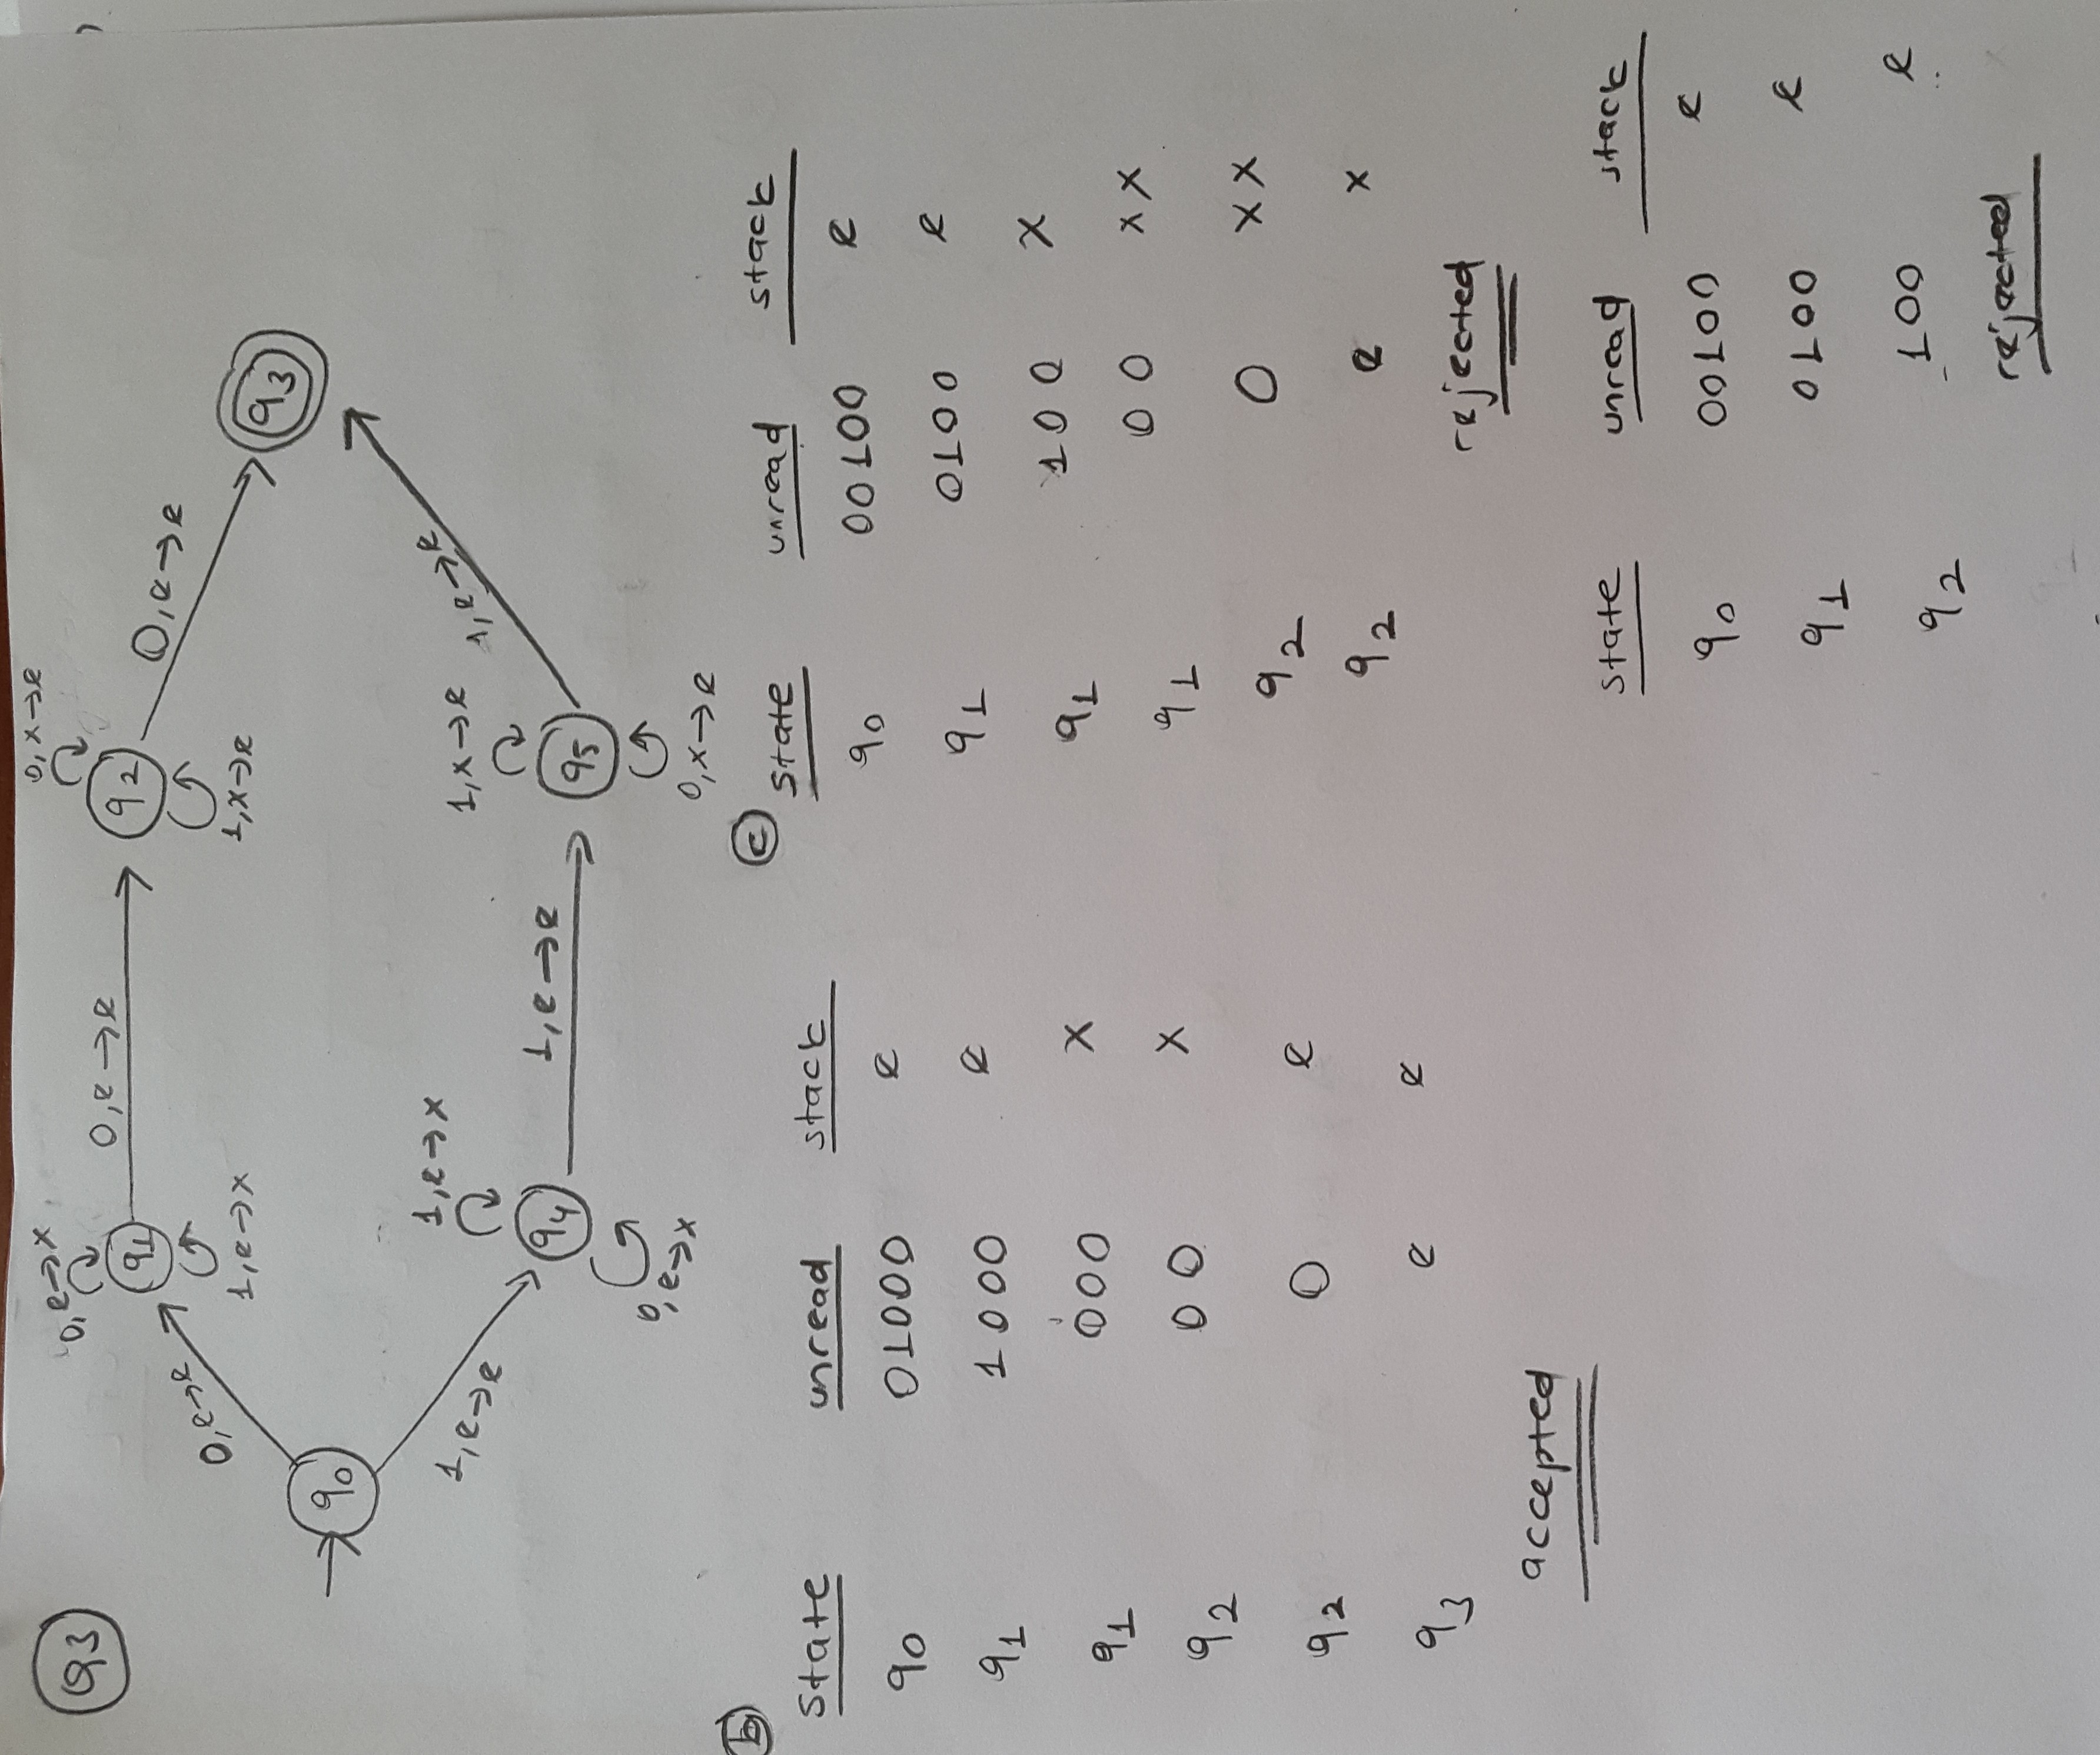 Q3
0, e→x
0, x→e
q1
0, e→e
q2
0, e→e
0, e→e
1, e→x
1, x→e
q3
q0
1, e→e
1, e→x
1, x→e
1, e→e
q4
1, e→e
q5
0, e→x
0, x→e
b
state unread stack
q0 01000 e
q1 1000 e
q1 000 x
q2 00 x
q2 0 e
q3 e e
accepted
c
state unread stack
q0 00100 e
q1 0100 e
q1 100 x
q1 00 xx
q2 0 xx
q2 e x
rejected
state unread stack
q0 00100 e
q1 0100 e
q2 100 e
rejected